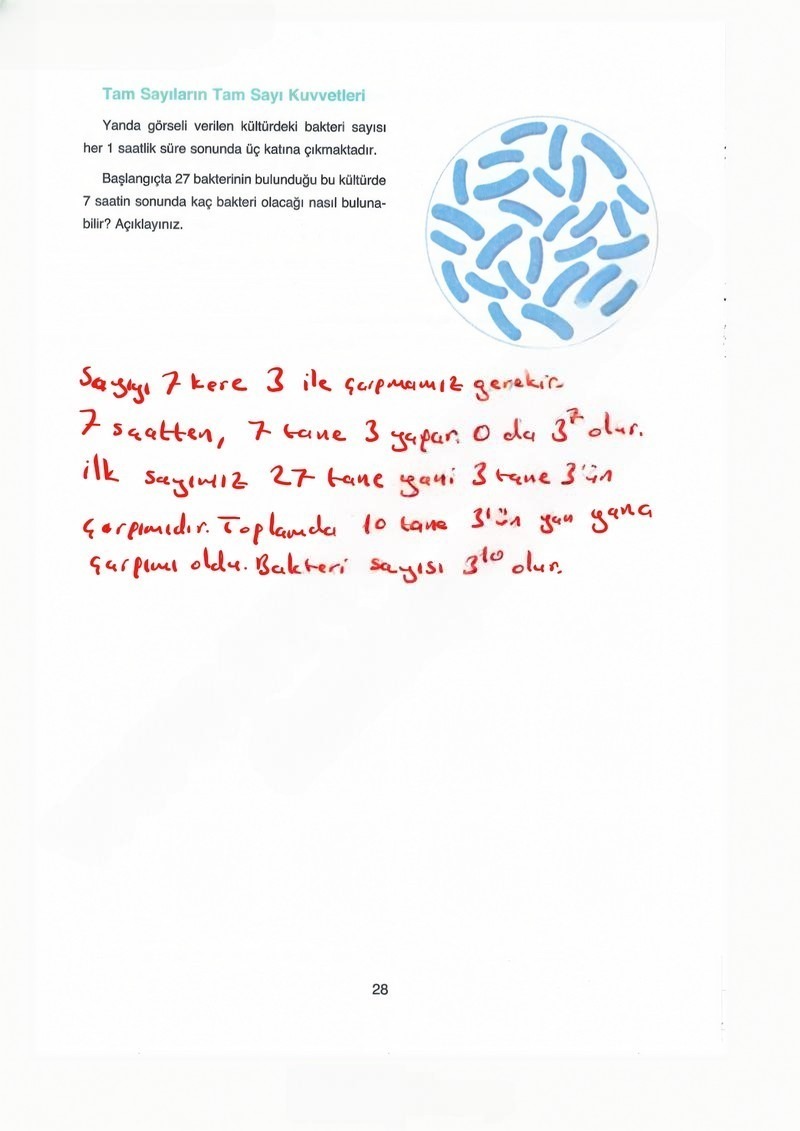 Tam Sayıların Tam Sayı Kuvvetleri
Yanda görseli verilen kültürdeki bakteri sayısı
her 1 saatlik süre sonunda üç katına çıkmaktadır.
Başlangıçta 27 bakterinin bulunduğu bu kültürde
7 saatin sonunda kaç bakteri olacağı nasıl buluna-
bilir? Açıklayınız.
Sayıyı 7 kere 3 ile çarpmamız gerekir.
7 saatten, 7 tane 3 yapar. O da 3⁷ olur.
ilk sayımız 27 tane yani 3 tane 3'ün
çarpımıdır. Toplamda 10 tane 3'ün yan yana
çarpımı oldu. Bakteri sayısı 3¹⁰ olur.
28